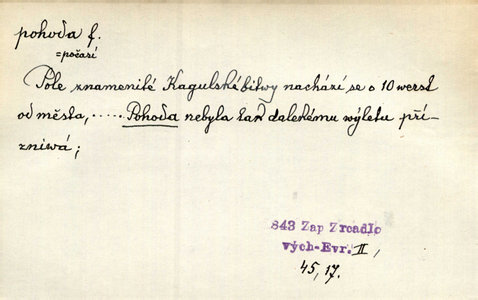 pohoda f.
=počasí
Pole znamenité Kagulské bitwy nachází se o 10 werst
od města, ..... Pohoda nebyla tak dalekému wýletu pří-
zniwá;
843 Zap Zrcadlo
vých-Evr. II,
45, 17.